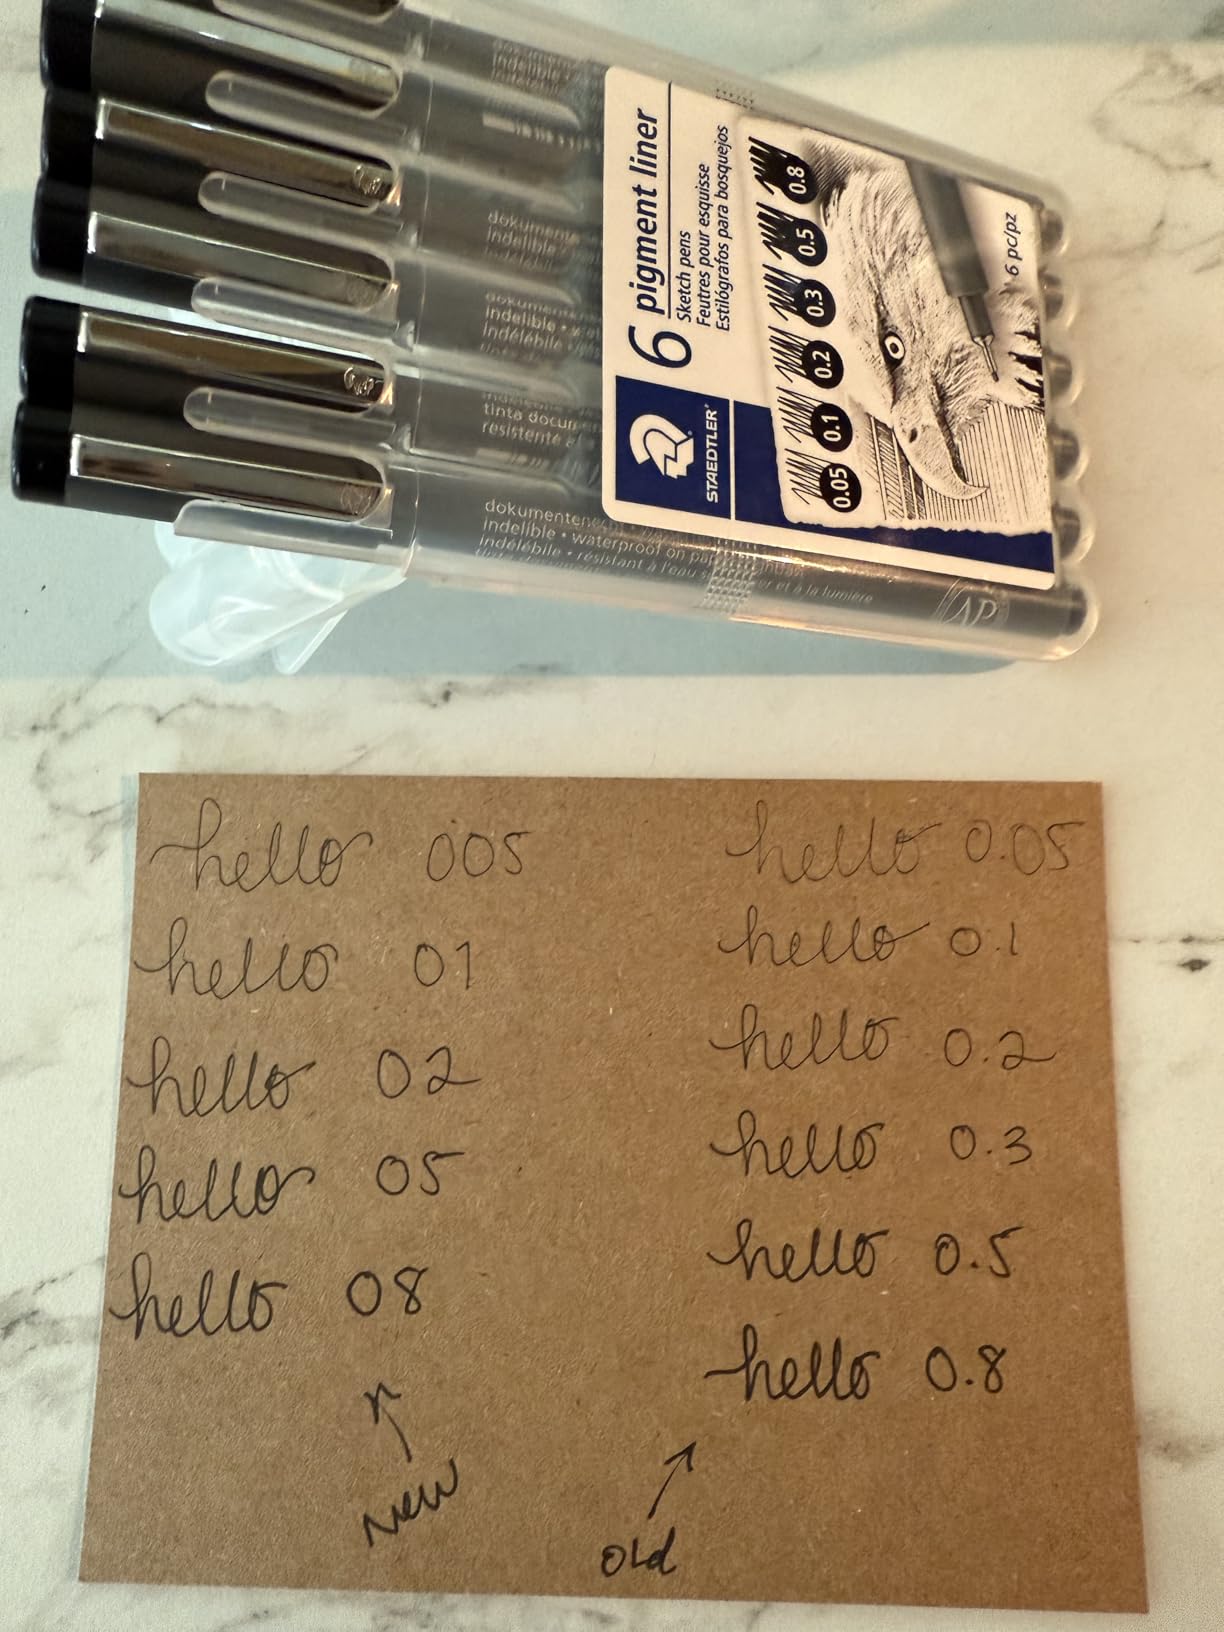 6 pigment liner
Sketch pens
Feutres pour esquisse
Estilógrafos para bosquejos
STAEDTLER
0.05 0.1 0.2 0.3 0.5 0.8
6 pc/pz
indelible
dokumente
indelible
dokumente
indelible
indélébile
tinta docum
resistente a
dokumentenecht
indelible • waterproof on pap
indélébile • résistant à l'eau et à la lumière
AP
hello 005
hello 01
hello 02
hello 05
hello 08
new
hello 0.05
hello 0.1
hello 0.2
hello 0.3
hello 0.5
hello 0.8
old